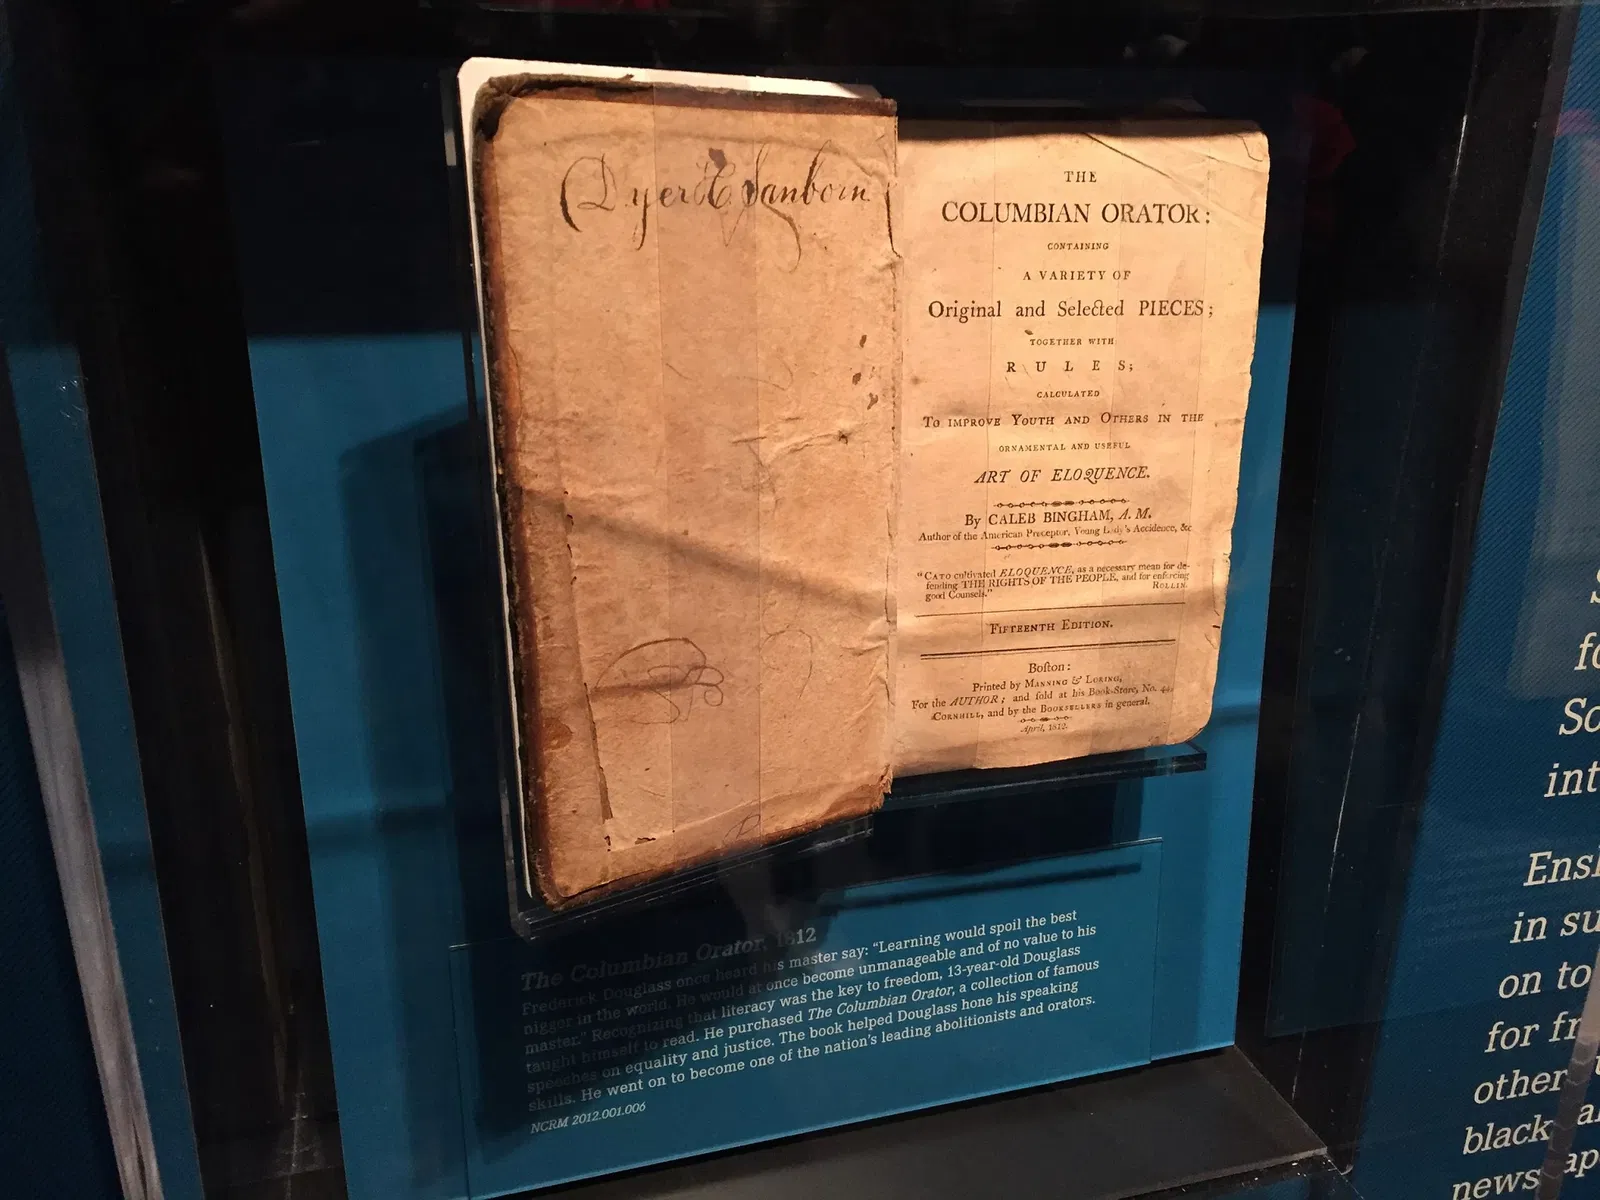 Dyer H Sanborn
THE
COLUMBIAN ORATOR:
CONTAINING
A VARIETY OF
Original and Selected PIECES;
TOGETHER WITH
RULES;
CALCULATED
To IMPROVE YOUTH AND OTHERS IN THE
ORNAMENTAL AND USEFUL
ART OF ELOQUENCE.
By CALEB BINGHAM, A. M.
Author of the American Preceptor, Young Lady's Accidence, &c
"CATO cultivated ELOQUENCE, as a necessary mean for de-
fending THE RIGHTS OF THE PEOPLE, and for enforcing
good Counsels." ROLLIN.
FIFTEENTH EDITION.
Boſton:
Printed by MANNING & LORING,
For the AUTHOR; and ſold at his Book-Store, No. 44,
CORNHILL, and by the BOOKSELLERS in general.
April, 1812.
The Columbian Orator, 1812
Frederick Douglass once heard his master say: “Learning would spoil the best
nigger in the world. He would at once become unmanageable and of no value to his
master.” Recognizing that literacy was the key to freedom, 13-year-old Douglass
taught himself to read. He purchased The Columbian Orator, a collection of famous
speeches on equality and justice. The book helped Douglass hone his speaking
skills. He went on to become one of the nation's leading abolitionists and orators.
NCRM 2012.001.006
int
Ensl
in su
on to
for fr
other
black
news